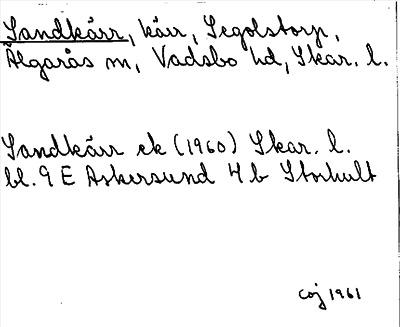 Sandkärr, kärr, Segolstorp,
Älgarås sn, Vadsbo hd, Skar. l.
Sandkärr ek (1960) Skar. l.
bl. 9 E Askersund 4 b Storhult
COJ 1961